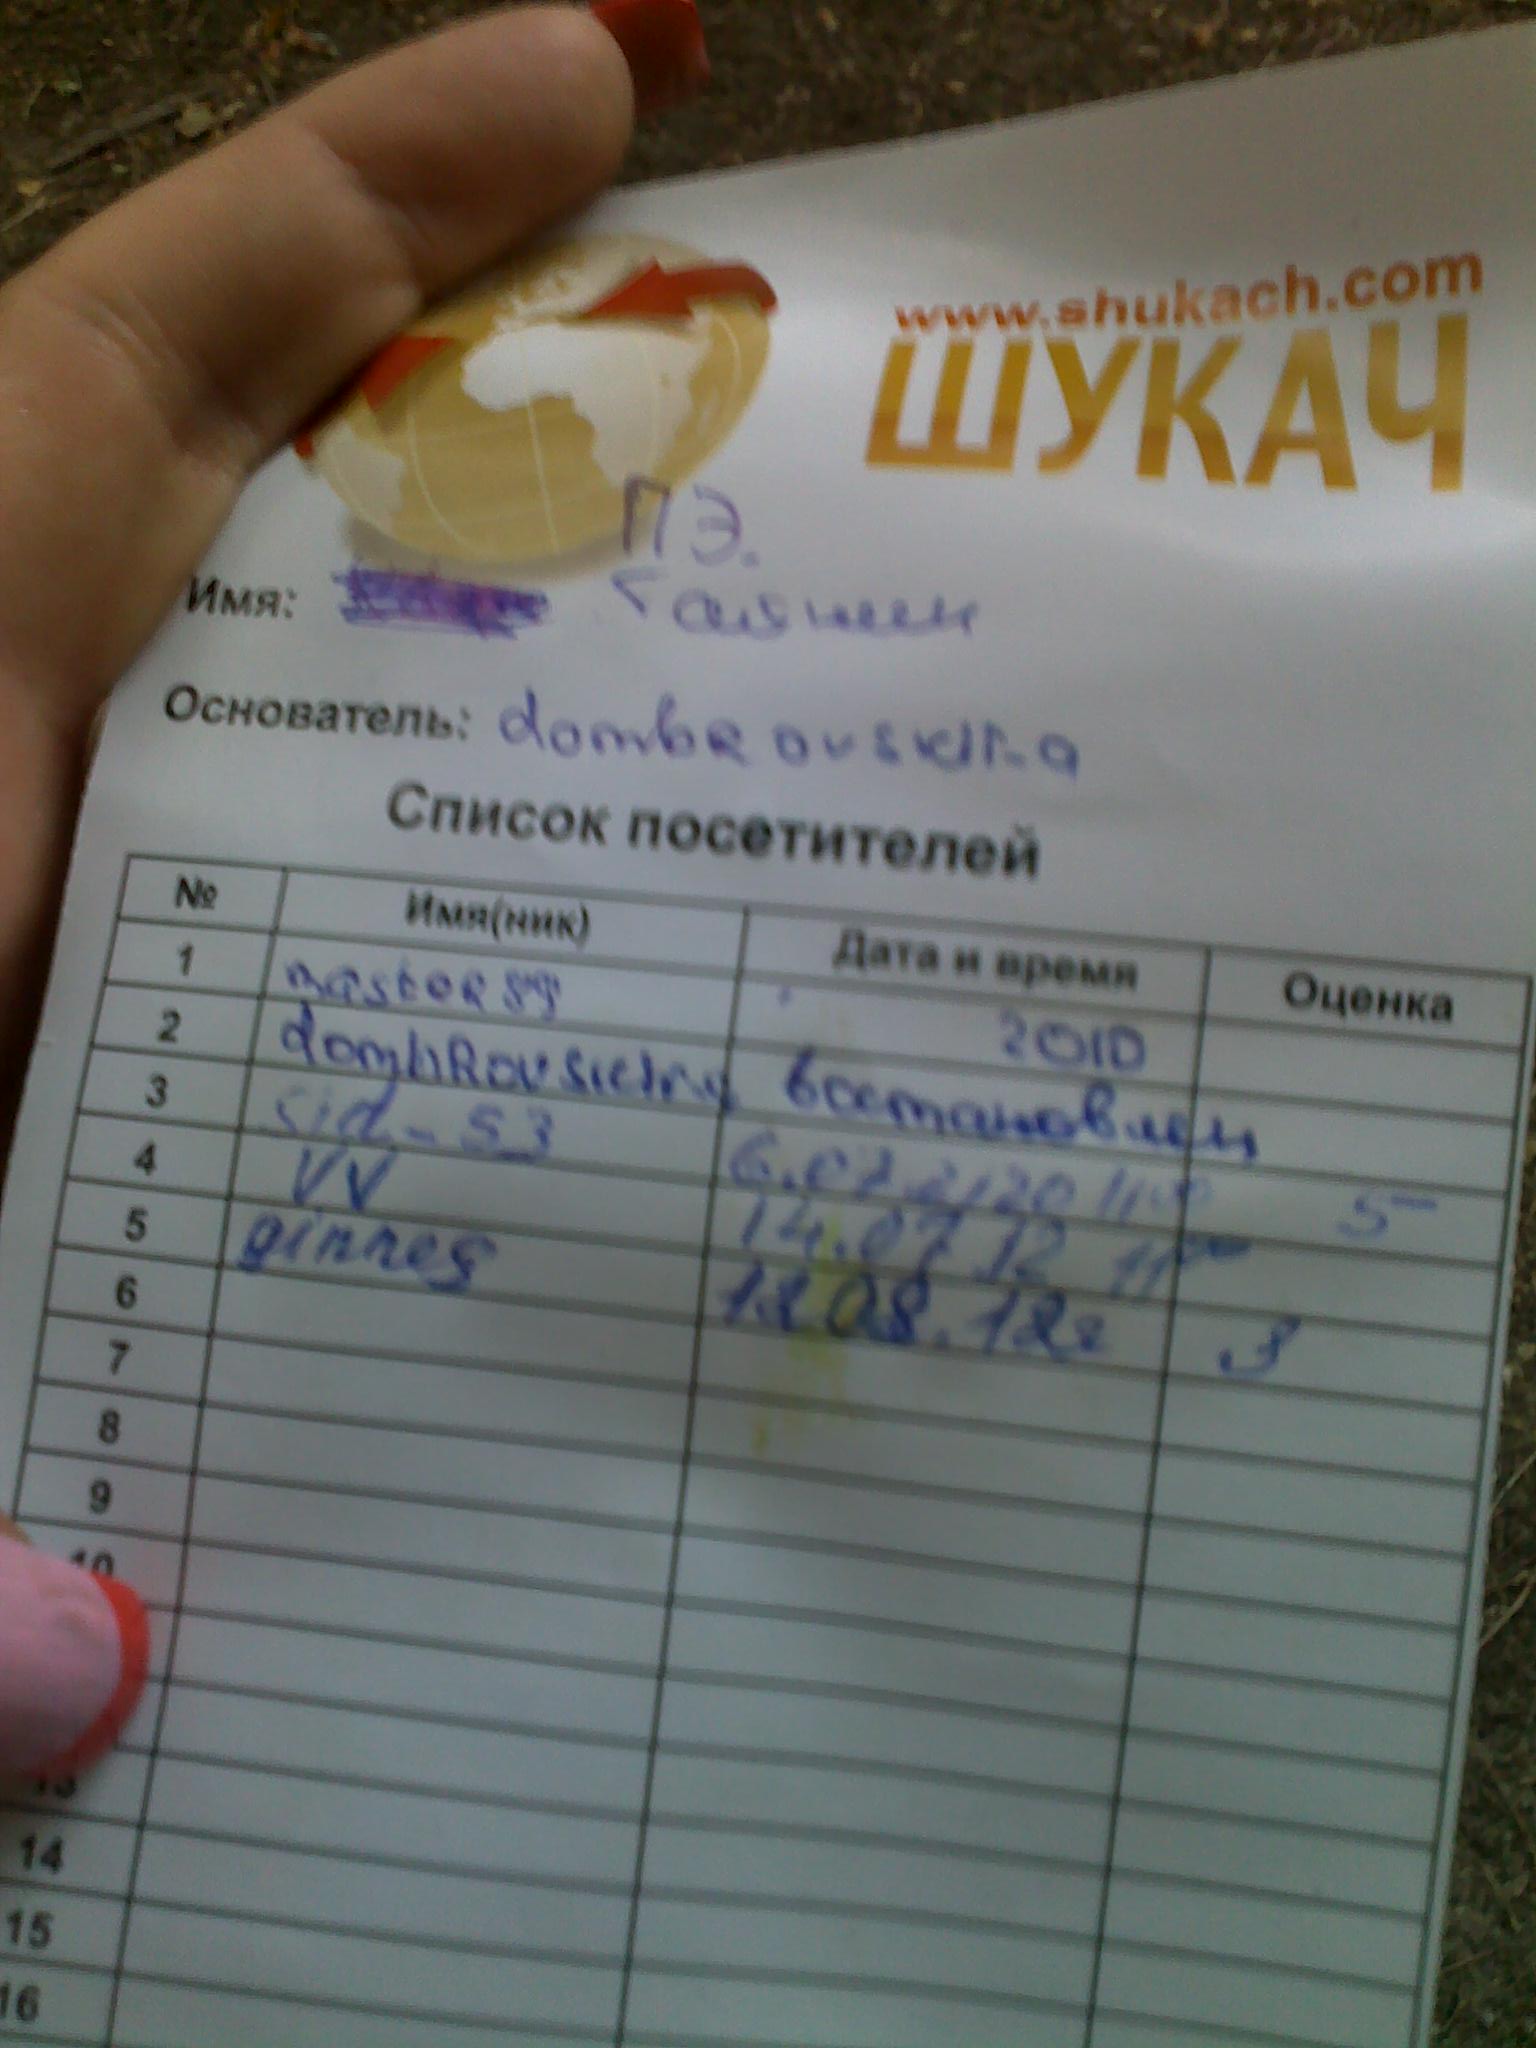 www.shukach.com
ШУКАЧ
ПЭ.
Имя:
Основатель: dombrovskiy-a
Список посетителей
№ Имя(ник) Дата и время Оценка
1 master89 2010
2 dombrovskiy востановлен
3 sid-53 6.07. 11:00 5-
4 VV 14.07 12 11:00
5 ginnes 12 08.12г 3
6
7
8
9
10
13
14
15
16